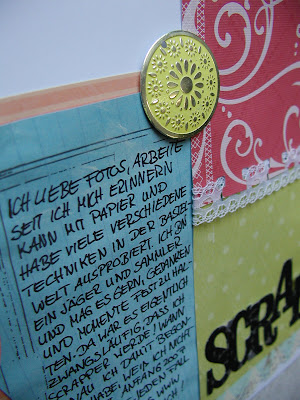 ICH LIEBE FOTOS, ARBEITE
SEIT ICH MICH ERINNERN
KANN MIT PAPIER UND
HABE VIELE VERSCHIEDENE
TECHNIKEN IN DER BASTEL
WELT AUSPROBIERT. ICH BIN
EIN JÄGER UND SAMMLER
UND MAG ES GERN, GEDANKEN
UND MOMENTE FEST ZU HAL-
TEN. DA WAR ES EIGENTLICH
ZWANGSLÄUFIG, DASS ICH
SCRAPPER WERDE! WANN
GENAU ICH DAMIT BEGON-
HABE, WEIß ICH NICHT
ANFANG 2007
JEDEN FALL
WWW
SCRA